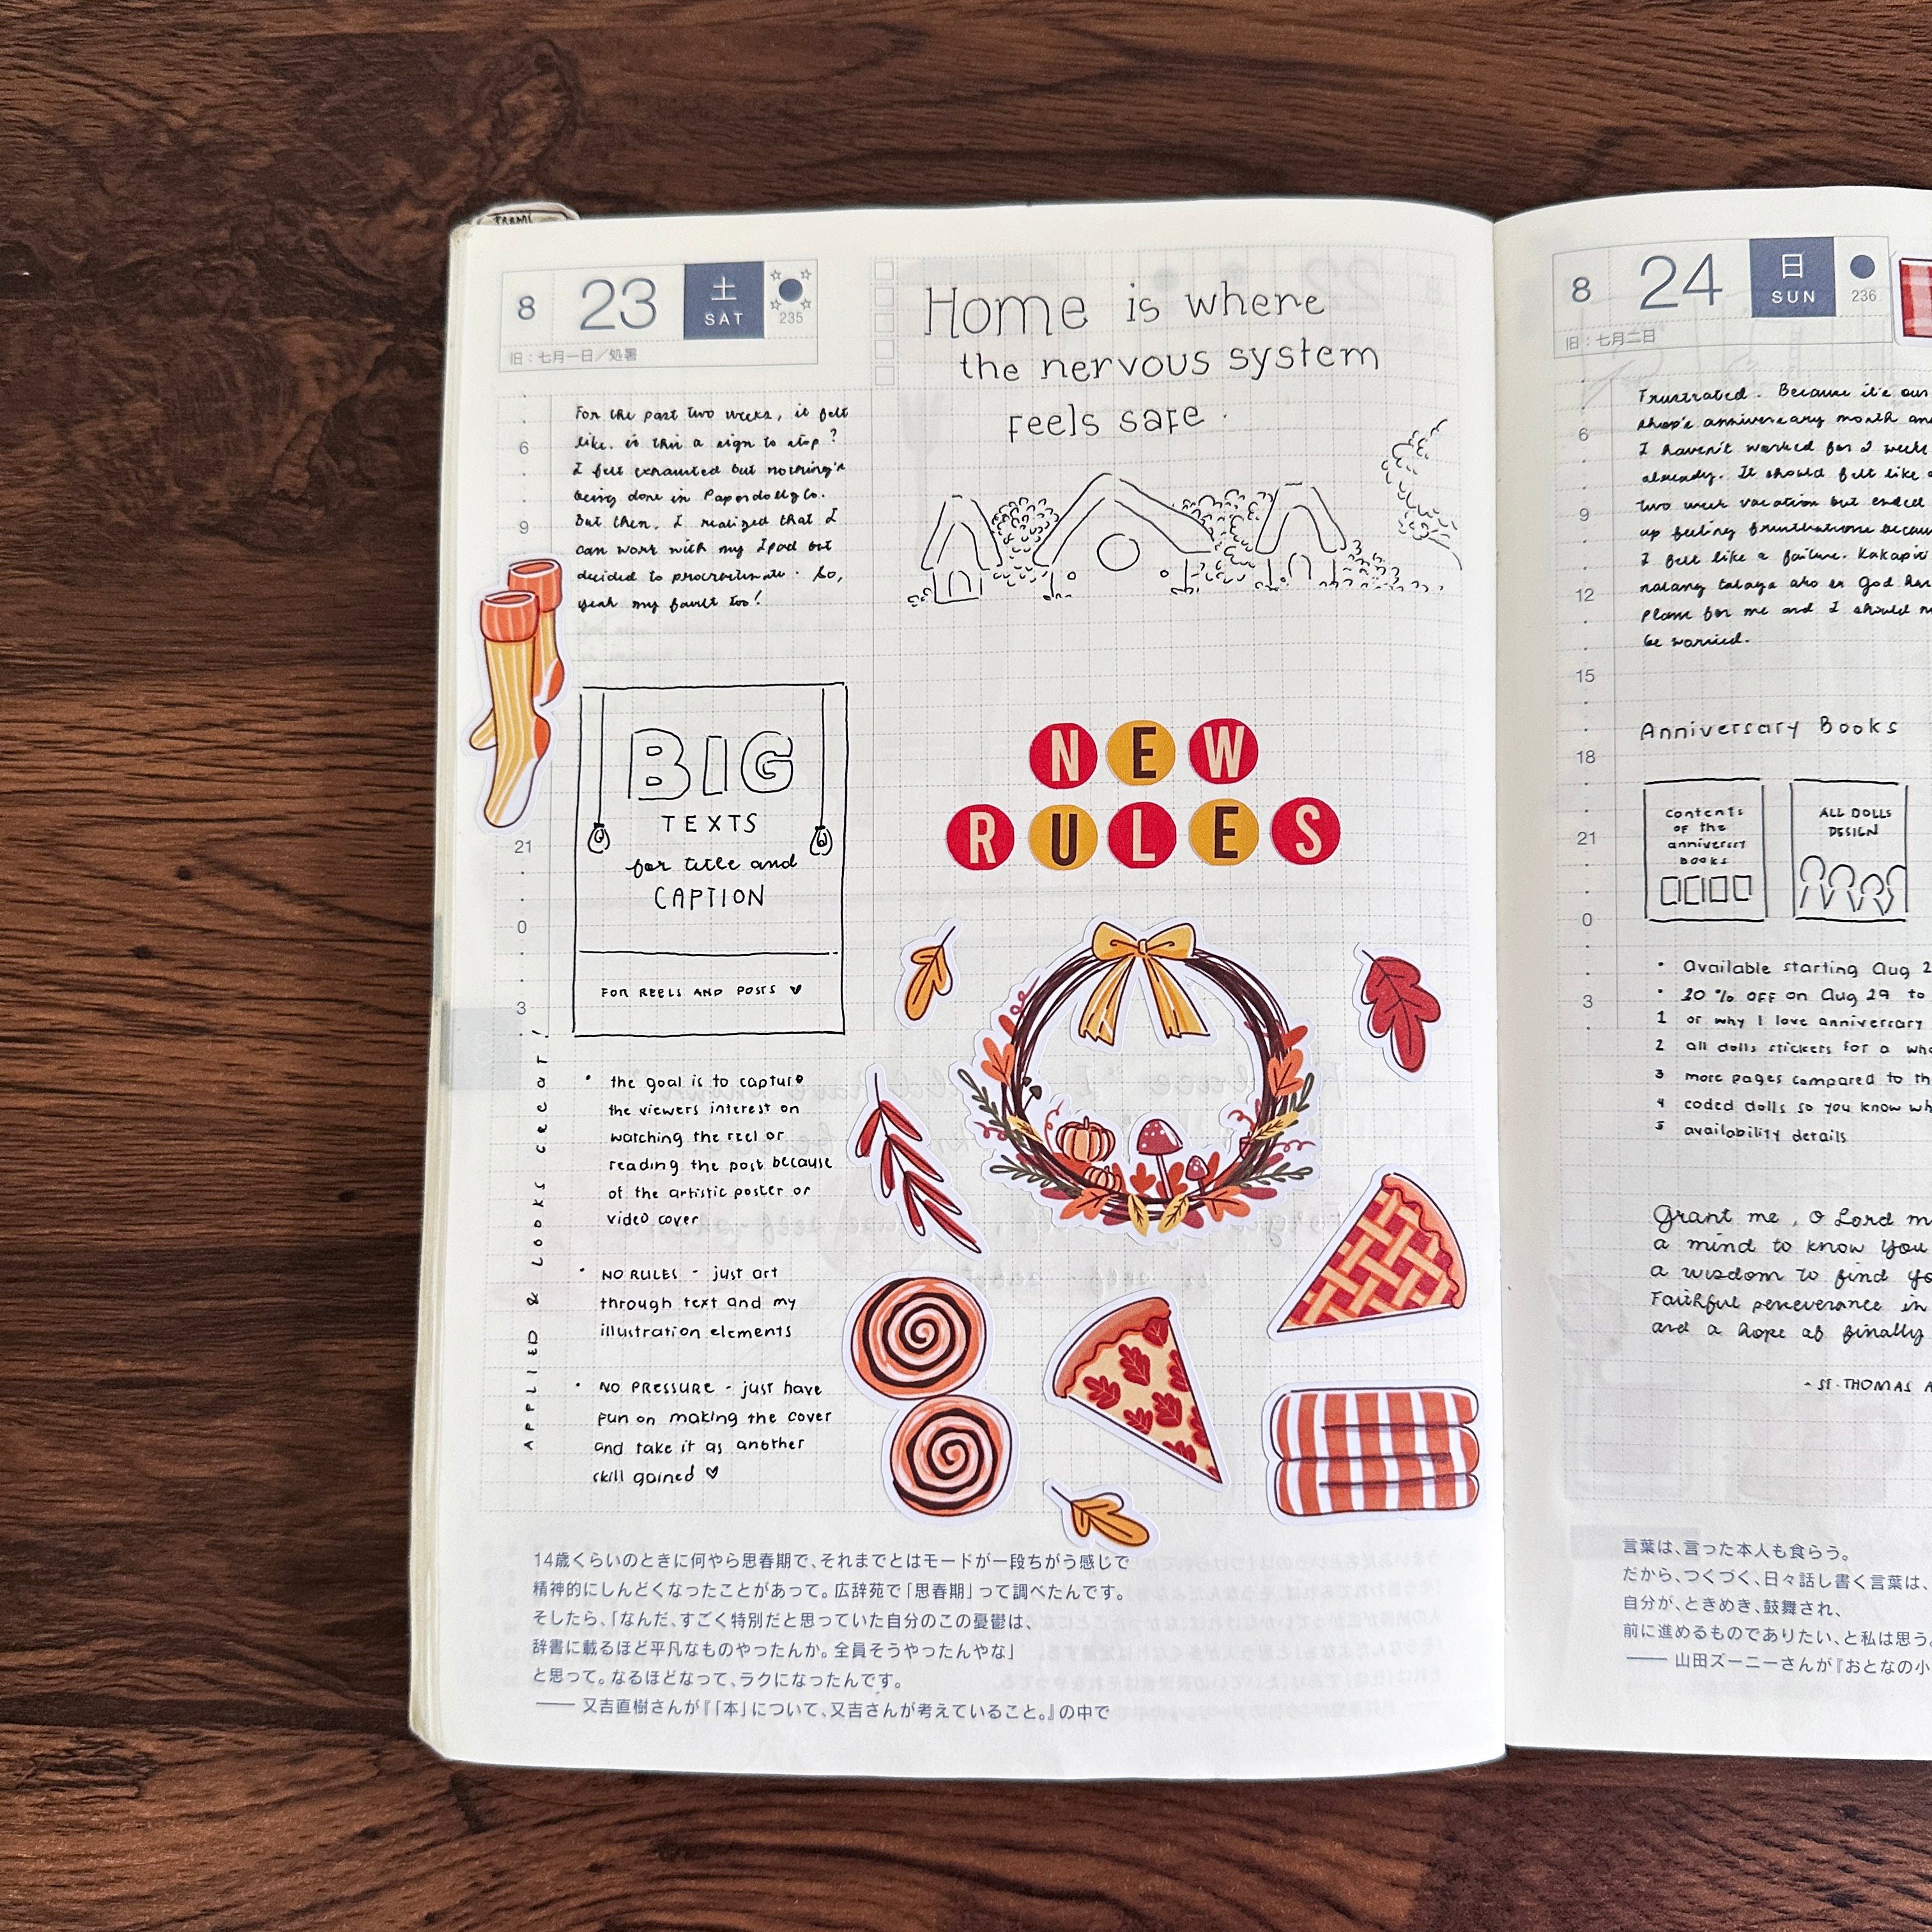 8 23 土 SAT 235
旧：七月一日／処暑
For the past two weeks, it felt
like, is this a sign to stop?
I felt exhausted but nothing's
being done in Paperdollyco.
But then, I realized that I
can work with my Ipad but
decided to procrastinate. So,
yeah my fault too!
6
9
21
0
3
BIG
TEXTS
for title and
CAPTION
FOR REELS AND POSTS
APPLIED & Looks Great!
• the goal is to capture
the viewers interest on
watching the reel or
reading the post because
of the artistic poster or
video cover
• NO RULES - just art
through text and my
illustration elements
• NO PRESSURE - just have
fun on making the cover
and take it as another
skill gained
Home is where
the nervous system
feels safe.
NEW
RULES
14歳くらいのときに何やら思春期で、それまでとはモードが一段ちがう感じで
精神的にしんどくなったことがあって。広辞苑で「思春期」って調べたんです。
そしたら、「なんだ、すごく特別だと思っていた自分のこの憂鬱は、
辞書に載るほど平凡なものやったんか。全員そうやったんやな」
と思って。なるほどなって、ラクになったんです。
―― 又吉直樹さんが『「本」について、又吉さんが考えていること。』の中で
8 24 日 SUN 236
旧：七月二日
Frustrated. Because it's our
shop's anniversary month and
I haven't worked for 2 weeks
already. It should felt like a
two week vacation but ended
up feeling frustrations because
I felt like a failure. Kakapit
nalang talaga ako kay God
plans for me and I should
be worried.
6
9
12
15
18
21
0
3
Anniversary Books
Contents
of the
anniversary
Books
ALL DOLLS
DESIGN
• Available starting Aug 2
• 20% OFF on Aug 29 to
1 or why I love anniversary
2 all dolls stickers for a
3 more pages compared to
4 coded dolls so you know
5 availability details
Grant me, O Lord
a mind to know You
a wisdom to find
Faithful perseverance in
and a hope of finally
- ST. THOMAS A
言葉は、言った本人も食らう。
だから、つくづく、日々話し書く言葉は、
自分が、ときめき、鼓舞され、
前に進めるものでありたい、と私は思う。
―― 山田ズーニーさんが『おとなの小